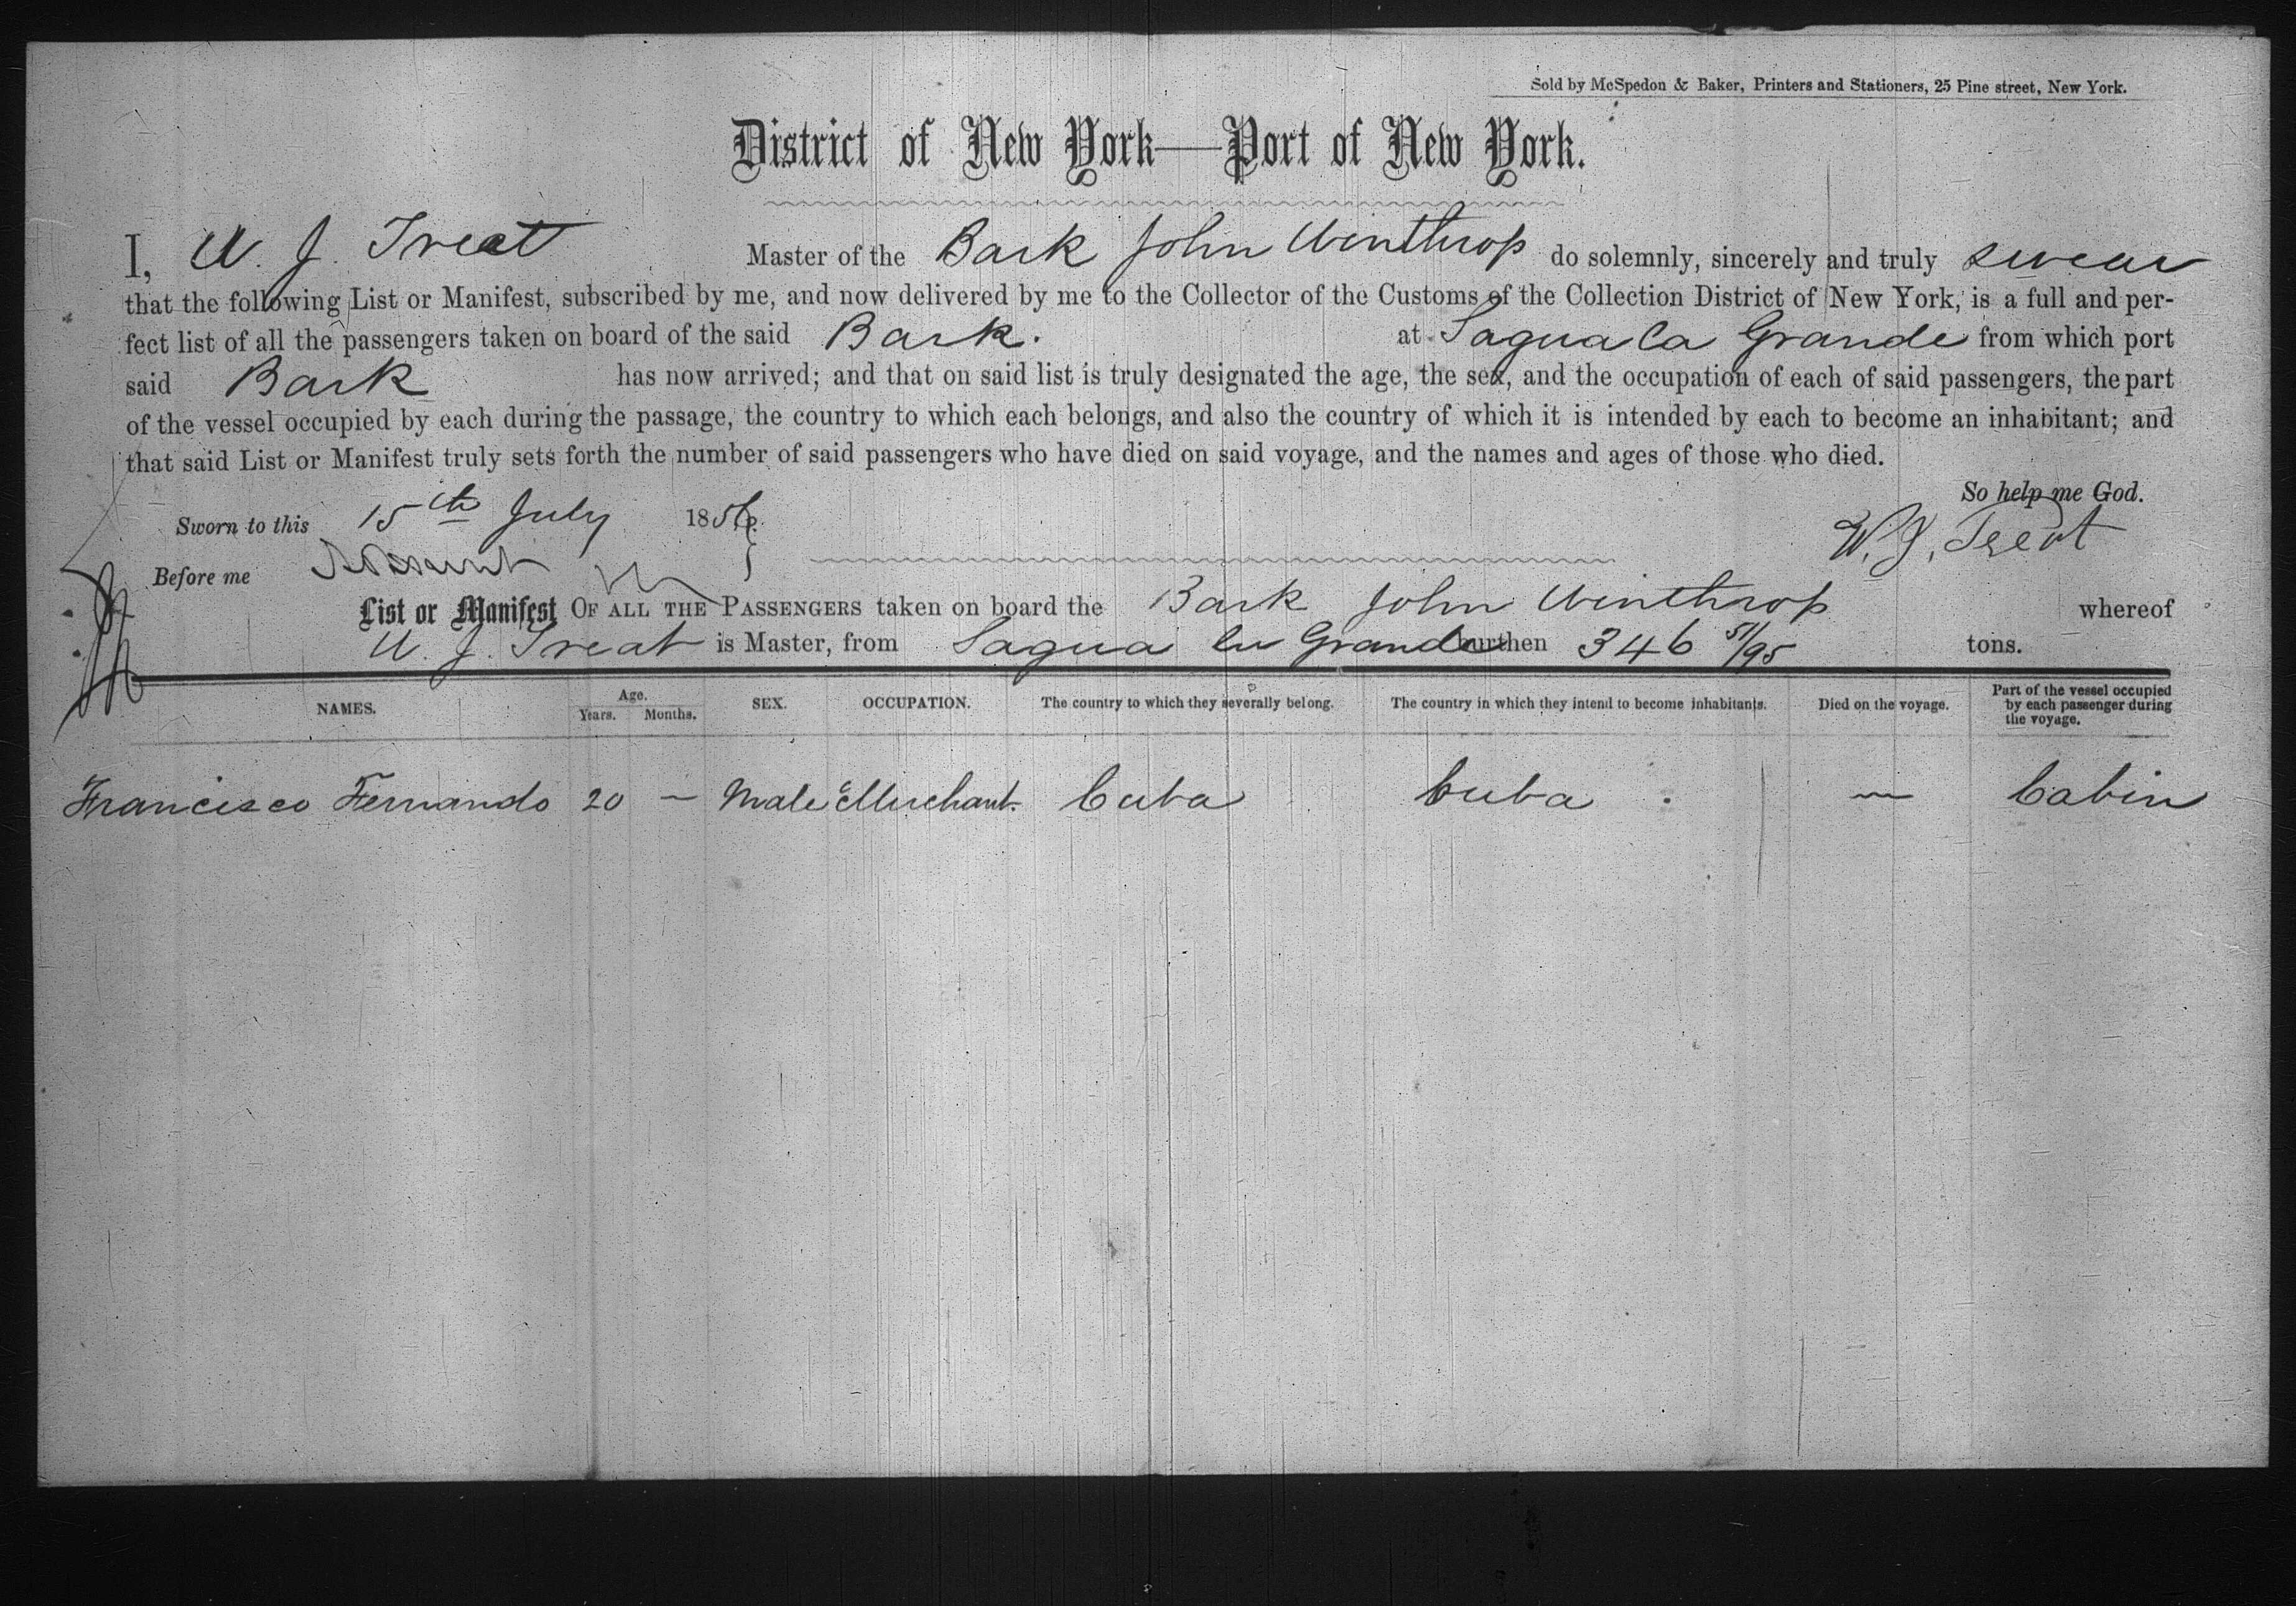 Sold by McSpedon & Baker, Printers and Stationers, 25 Pine street, New York.
District of New York—Port of New York.
I, W. J. Treat Master of the Bark John Winthrop do solemnly, sincerely and truly swear
that the following List or Manifest, subscribed by me, and now delivered by me to the Collector of the Customs of the Collection District of New York, is a full and per-
fect list of all the passengers taken on board of the said Bark. at Sagua la Grande from which port
said Bark has now arrived; and that on said list is truly designated the age, the sex, and the occupation of each of said passengers, the part
of the vessel occupied by each during the passage, the country to which each belongs, and also the country of which it is intended by each to become an inhabitant; and
that said List or Manifest truly sets forth the number of said passengers who have died on said voyage, and the names and ages of those who died.
So help me God.
Sworn to this 15th July 1856
W. J. Treat
Before me
List or Manifest OF ALL THE PASSENGERS taken on board the Bark John Winthrop whereof
W. J. Treat is Master, from Sagua la Grande burthen 346 51/95 tons.
NAMES. Age. Years. Months. SEX. OCCUPATION. The country to which they severally belong. The country in which they intend to become inhabitants. Died on the voyage. Part of the vessel occupied by each passenger during the voyage.
Francisco Fernando 20 — Male Merchant. Cuba Cuba — Cabin